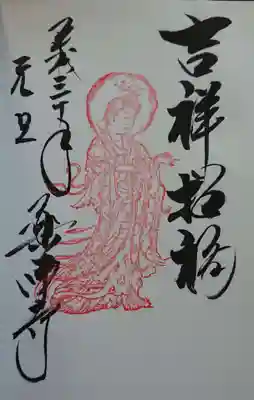 吉祥招福
平成三十年
元旦
薬師寺